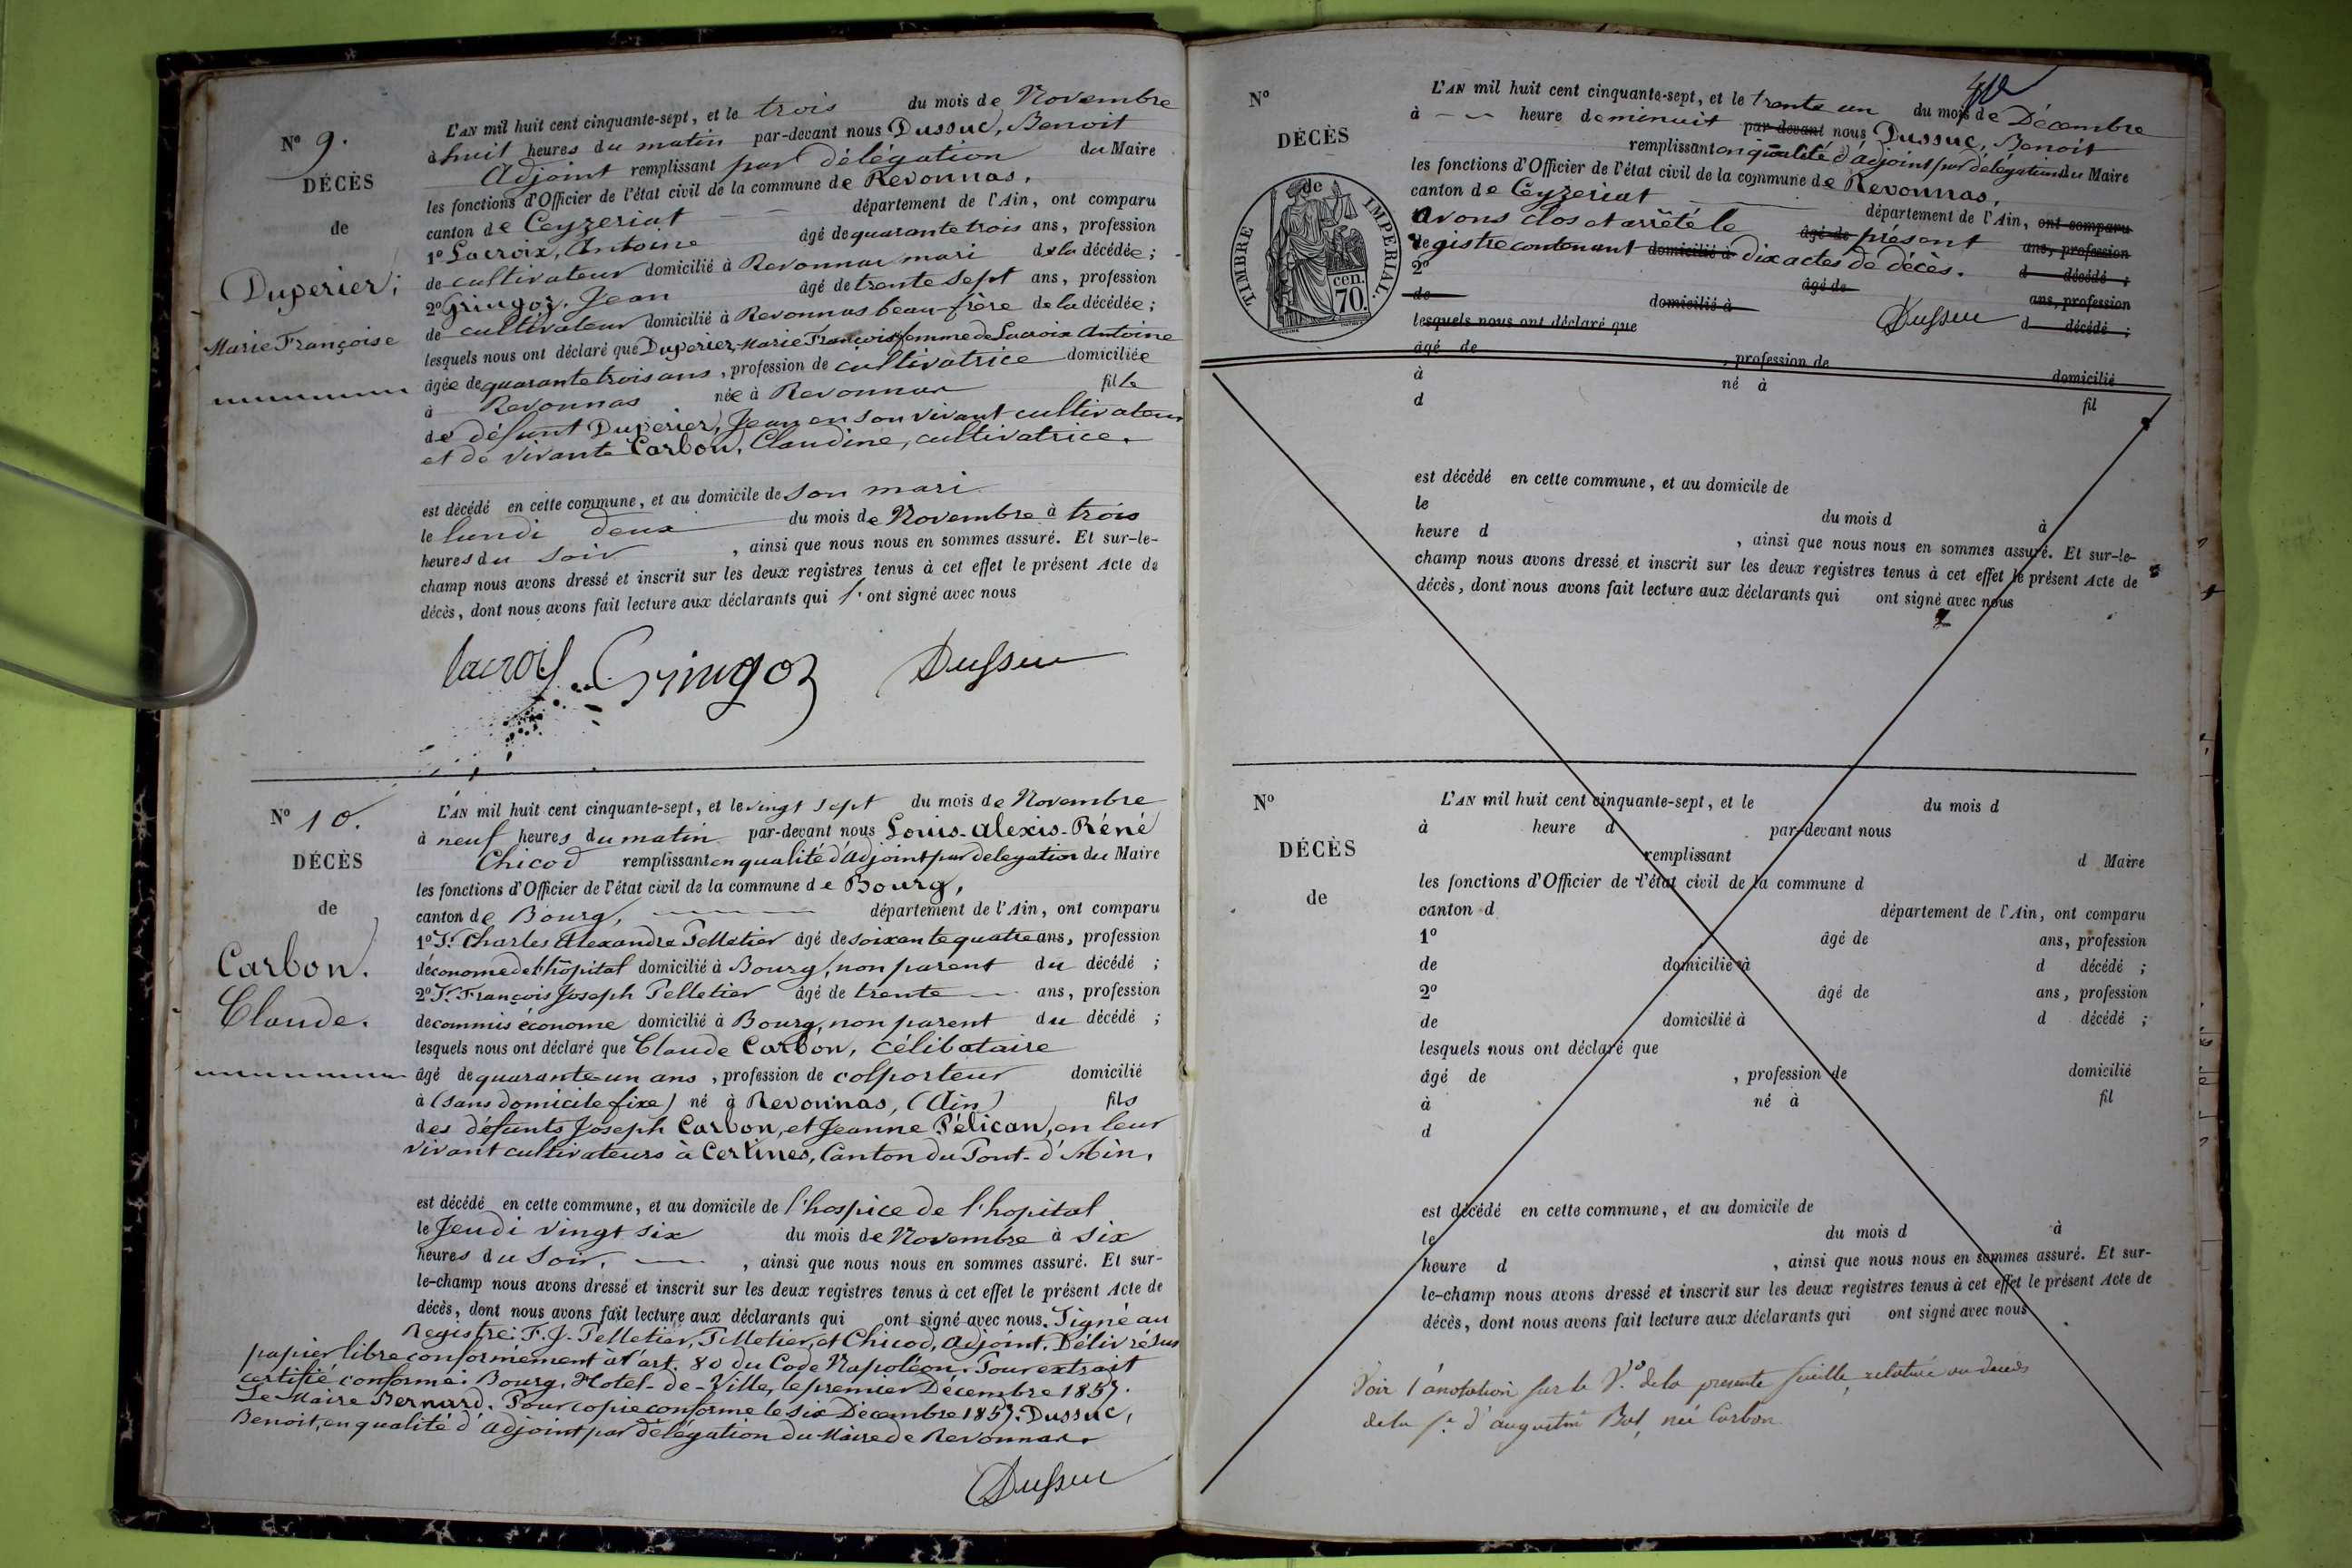 N° 9.
DÉCÈS
de
Duperier,
Marie Françoise
L'AN mil huit cent cinquante-sept, et le trois du mois de Novembre
à huit heures du matin par-devant nous Dussuc, Benoit
Adjoint remplissant par délégation du Maire
les fonctions d'Officier de l'état civil de la commune de Revonnas,
canton de Ceyzeriat département de l'Ain, ont comparu
1° Lacroix, Antoine âgé de quarante trois ans, profession
de cultivateur domicilié à Revonnas mari de la décédée ;
2° Gringoz, Jean âgé de trente sept ans, profession
de cultivateur domicilié à Revonnas beau-frère de la décédée ;
lesquels nous ont déclaré que Duperier, Marie Françoise femme de Lacroix Antoine
âgée de quarante trois ans, profession de cultivatrice domiciliée
à Revonnas née à Revonnas fille
de défunt Duperier, Jean en son vivant cultivateur
et de vivante Carbon, Claudine, cultivatrice.
est décédé en cette commune, et au domicile de son mari
le lundi deux du mois de Novembre à trois
heures du soir , ainsi que nous nous en sommes assuré. Et sur-le-
champ nous avons dressé et inscrit sur les deux registres tenus à cet effet le présent Acte de
décès, dont nous avons fait lecture aux déclarants qui l' ont signé avec nous
Lacroix Gringoz Dussuc
N° 10.
DÉCÈS
de
Carbon.
Claude.
L'AN mil huit cent cinquante-sept, et le vingt sept du mois de Novembre
à neuf heures du matin par-devant nous Louis-Alexis-Réné
Chicod remplissant en qualité d'Adjoint par delegation du Maire
les fonctions d'Officier de l'état civil de la commune de Bourg,
canton de Bourg, département de l'Ain, ont comparu
1° Sr Charles Alexandre Pelletier âgé de soixante quatre ans, profession
d'économe de l'hôpital domicilié à Bourg, non parent du décédé ;
2° Sr François Joseph Pelletier âgé de trente ans, profession
de commis économe domicilié à Bourg, non parent du décédé ;
lesquels nous ont déclaré que Claude Carbon, célibataire
âgé de quarante un ans, profession de colporteur domicilié
à (sans domicile fixe) né à Revonnas, (Ain) fils
des défunts Joseph Carbon, et Jeanne Pélican, en leur
vivant cultivateurs à Certines, Canton du Pont-d'Ain.
est décédé en cette commune, et au domicile de l'hospice de l'hopital
le Jeudi vingt six du mois de Novembre à six
heures du soir, , ainsi que nous nous en sommes assuré. Et sur-
le-champ nous avons dressé et inscrit sur les deux registres tenus à cet effet le présent Acte de
décès, dont nous avons fait lecture aux déclarants qui ont signé avec nous. Signé au
Registre: F. J. Pelletier, Pelletier, et Chicod, adjoint. Délivré sur
papier libre conformément à l'art. 80 du Code Napoléon. Pour extrait
certifié conforme: Bourg, Hotel-de-Ville, le premier Décembre 1857.
Le Maire Bernard. Pour copie conforme le six Décembre 1857. Dussuc,
Benoit, en qualité d'adjoint par délégation du Maire de Revonnas.
Dussuc
N°
DÉCÈS
de
TIMBRE IMPÉRIAL.
70. cen.
L'AN mil huit cent cinquante-sept, et le trente un du mois de Décembre
à heure de minuit par-devant nous Dussuc, Benoit
remplissant en qualité d'adjoint par délégation du Maire
les fonctions d'Officier de l'état civil de la commune de Revonnas,
canton de Ceyzeriat département de l'Ain, ont comparu
avons clos et arrêté le âgé de présent ans, profession
registre contenant domicilié à dix actes de décès. d décédé ;
2° âgé de ans, profession
de domicilié à d décédé ;
lesquels nous ont déclaré que Dussuc
âgé de , profession de domicilié
à né à fil
d
est décédé en cette commune, et au domicile de
le du mois d à
heure d , ainsi que nous nous en sommes assuré. Et sur-le-
champ nous avons dressé et inscrit sur les deux registres tenus à cet effet le présent Acte de
décès, dont nous avons fait lecture aux déclarants qui ont signé avec nous
N°
DÉCÈS
de
L'AN mil huit cent cinquante-sept, et le du mois d
à heure d par-devant nous
remplissant d Maire
les fonctions d'Officier de l'état civil de la commune d
canton d département de l'Ain, ont comparu
1° âgé de ans, profession
de domicilié à d décédé ;
2° âgé de ans, profession
de domicilié à d décédé ;
lesquels nous ont déclaré que
âgé de , profession de domicilié
à né à fil
d
est décédé en cette commune, et au domicile de
le du mois d à
heure d , ainsi que nous nous en sommes assuré. Et sur-
le-champ nous avons dressé et inscrit sur les deux registres tenus à cet effet le présent Acte de
décès, dont nous avons fait lecture aux déclarants qui ont signé avec nous
Voir l'anotation sur le V° de la presente feuille, relative au deces
de la fe d'augustin Bal, née Carbon